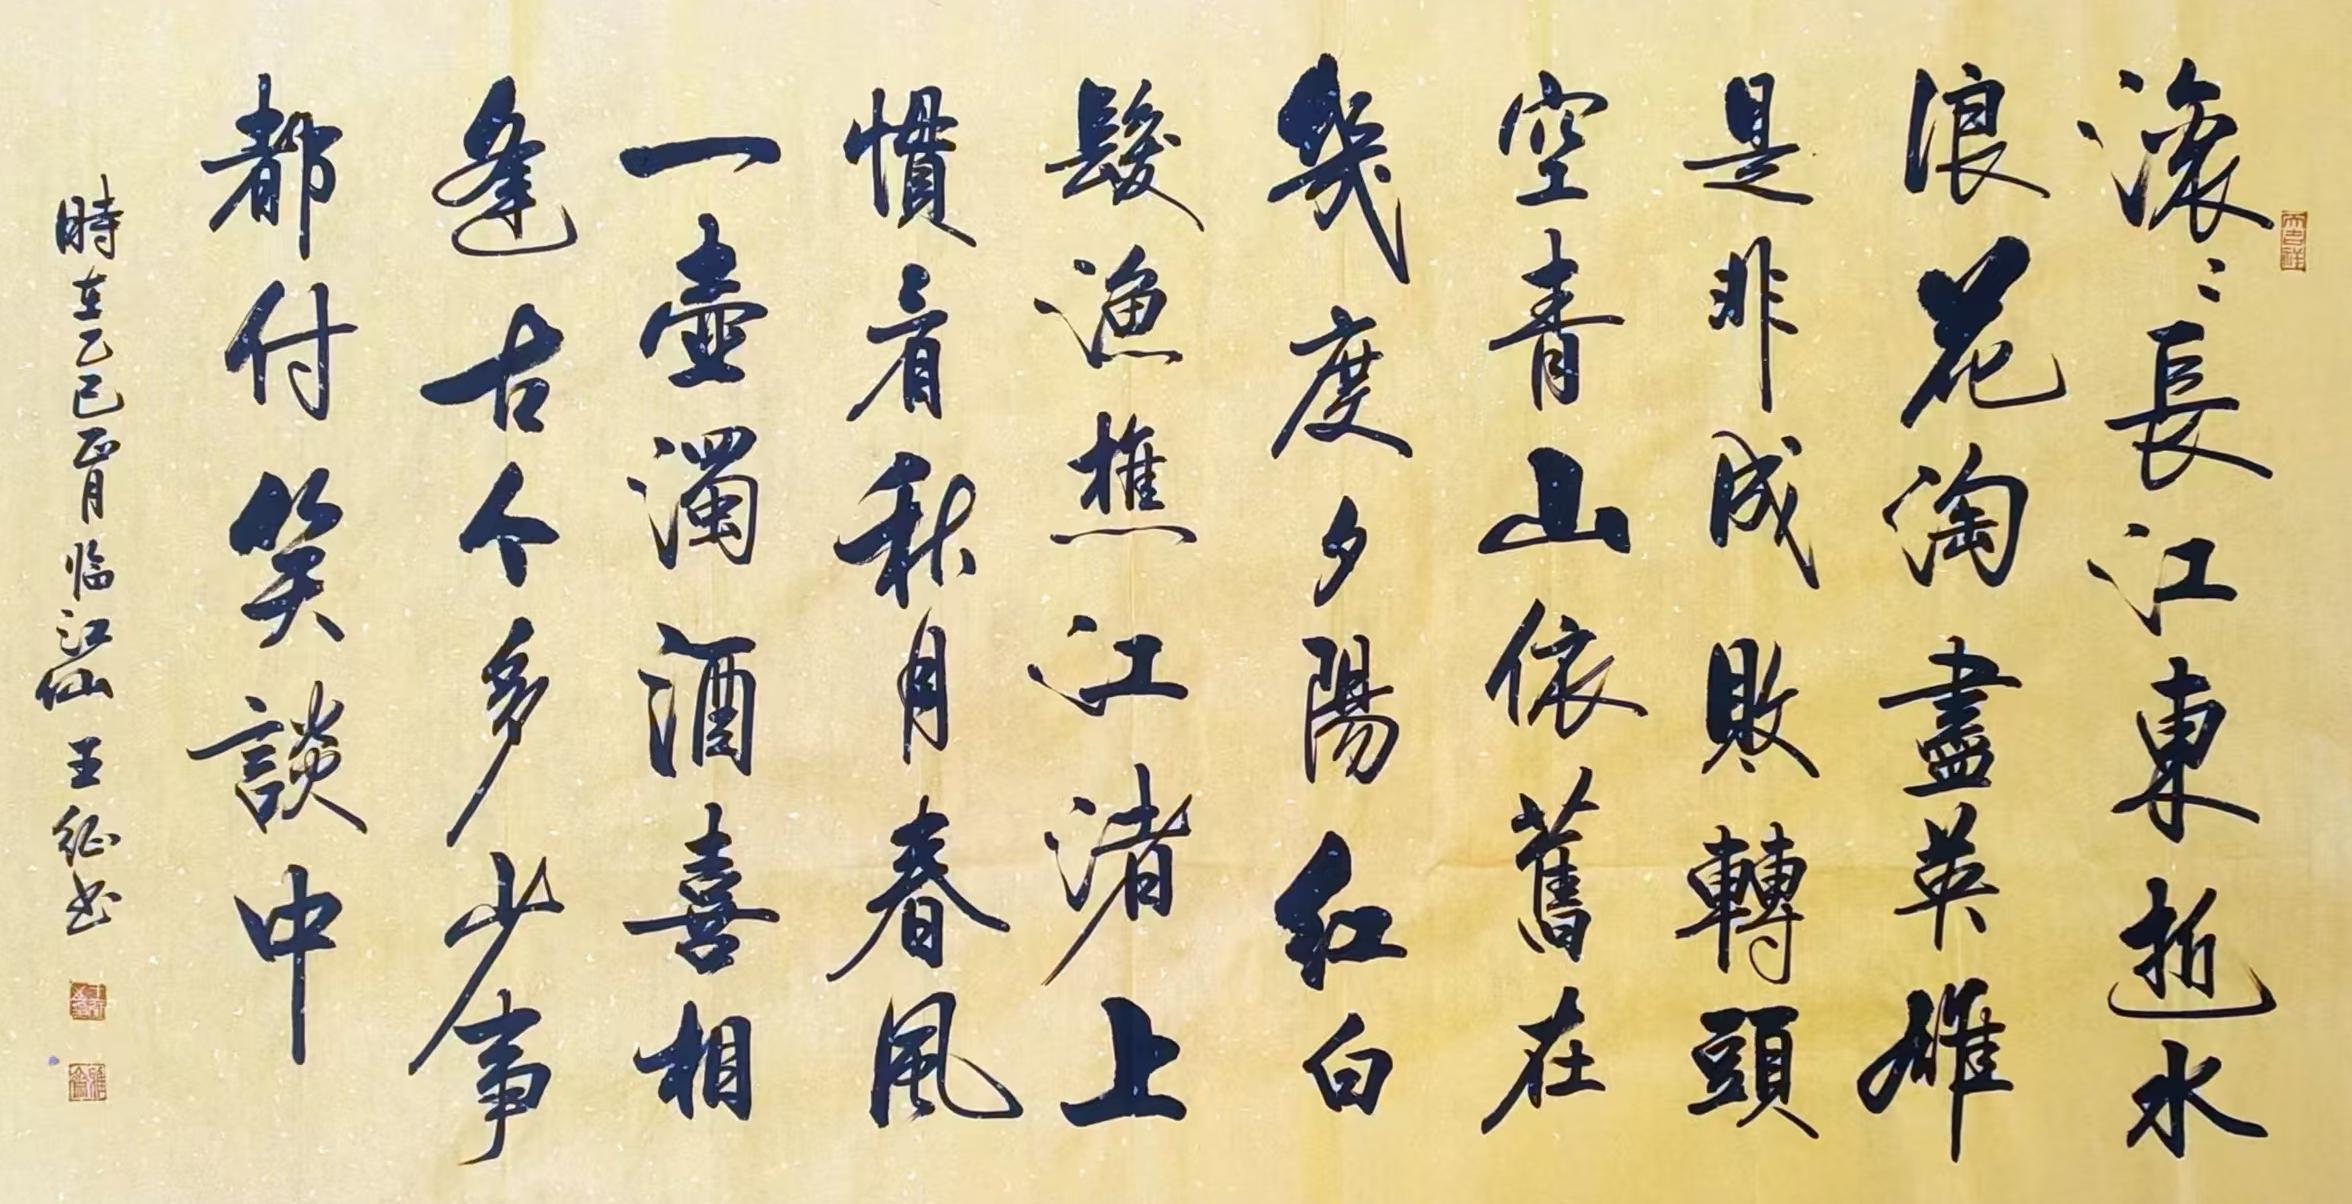 滾〻長江東逝水
浪花淘盡英雄
是非成敗轉頭
空青山依舊在
幾度夕陽紅白
髮漁樵江渚上
慣看秋月春風
一壺濁酒喜相
逢古今多少事
都付笑談中
時在乙巳正月 临江仙 王征书